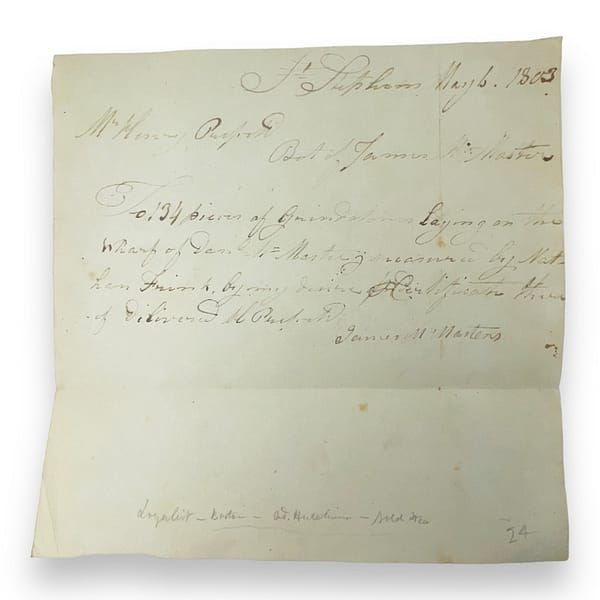 St Stephens May 6. 1803
Mr Henry Prescott
Bot of James Mc Master
To 134 pieces of Grindstones Laying on the
wharf of Danl Mc Master measured by Nat
han Frink, by my desire & Certificate there
of Delivered H Prescott
James Mc Masters
Loyalist - Boston - - Sold Tea
24